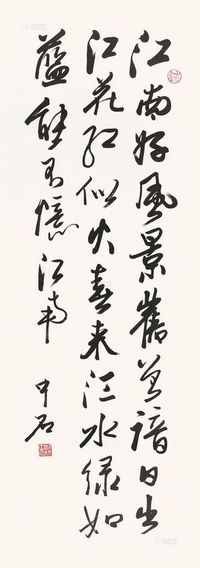 江南好風景舊曾諳日出
江花紅似火春来江水緑如
藍能不憶江南
中石